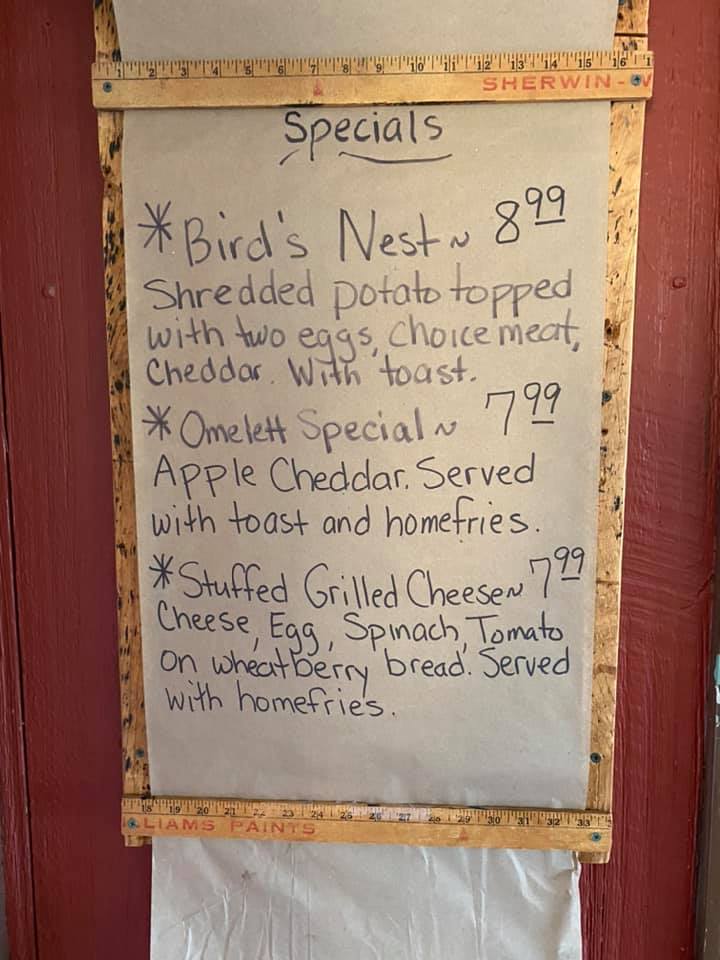 1 2 3 4 5 6 7 8 9 10 11 12 13 14 15 16 1
SHERWIN-W
Specials
*Bird's Nest ~ 8 99
Shredded potato topped
with two eggs, choice meat,
Cheddar. With toast.
*Omelett Special ~ 7 99
Apple Cheddar. Served
with toast and homefries.
*Stuffed Grilled Cheese ~ 7 99
Cheese, Egg, Spinach, Tomato
on wheatberry bread. Served
with homefries.
18 19 20 21 22 23 24 25 26 27 28 29 30 31 32 33
LIAMS PAINTS